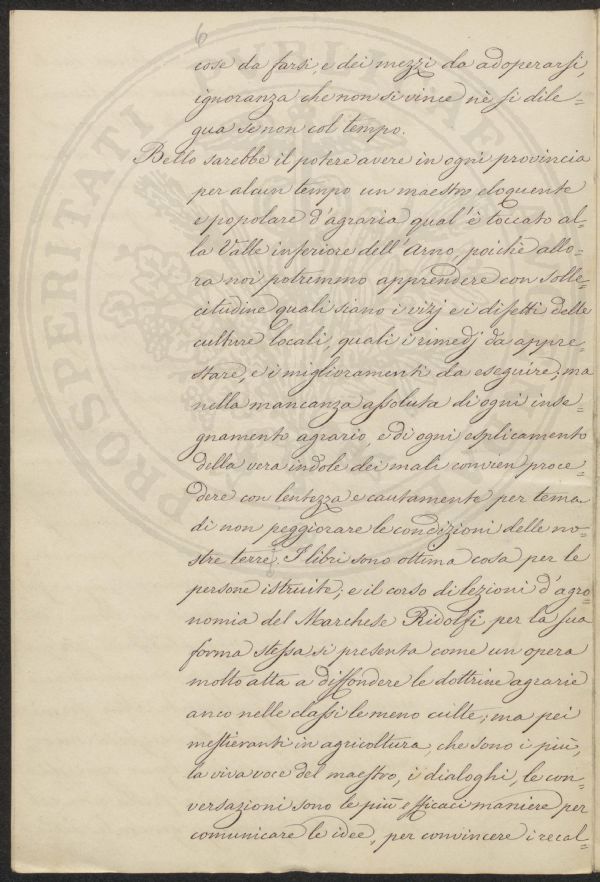 6
cose da farsi, e dei mezzi da adoperarsi,
ignoranza che non si vince nè si dile=
gua se non col tempo.
Bello sarebbe il potere avere in ogni provincia
per alcun tempo un maestro eloquente
e popolare d'agraria qual'è toccato al=
la Valle inferiore dell'Arno, poichè allo=
ra noi potremmo apprendere con solle=
citudine quali siano i vizj e i difetti delle
culture locali, quali i rimedj da appre=
stare, e i miglioramenti da eseguire; ma
nella mancanza assoluta di ogni inse=
gnamento agrario, e di ogni esplicamento
della vera indole dei mali convien proce=
dere con lentezza e cautamente per tema
di non peggiorare le condizioni delle no=
stre terre. I libri sono ottima cosa per le
persone istruite; e il corso di lezioni d'agro=
nomia del Marchese Ridolfi per la sua
forma stessa si presenta come un opera
molto atta a diffondere le dottrine agrarie
anco nelle classi le meno culte; ma pei
mestieranti in agricoltura, che sono i più,
la viva voce del maestro, i dialoghi, le con=
versazioni sono le più efficaci maniere per
comunicare le idee, per convincere i recal=
PROSPERITATI